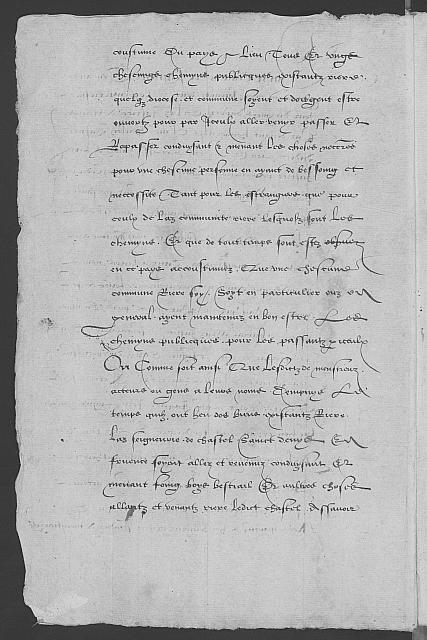 coustume du pays et lieu Tous et ungs
chescungs chemyns publicques existantz riere
quelq diocese et commune soyent et doegent estre
ouvertz pour par Iceulx aller venir passer et
Repasser conduysant et menant les choses necess
pour une chescune personne en ayant de bessoing et
necessite Tant pour les estrangiers que pour
ceulx de Laz communite riere lesquelz sont Les
chemyns Et que de tout temps sont estez
en ce pays accoustumez Que une chescune
commune Riere soy Soyt en particulier ouz en
general ayent maintenuz en bon estre Les
chemyns publicques pour les passantz
Or Comme soit ainsi Que Lesditz de monstreux
acteurs ou gens a leurs noms
temps quilz ont heu des biens existantz Riere
Laz seigneurie de chastel Sainct denys En
fruence soyent allez et revenuz conduysant Et
menant foing boys bestiail Et aultres choses
allantz et venantz riere ledict chastel Assavoir